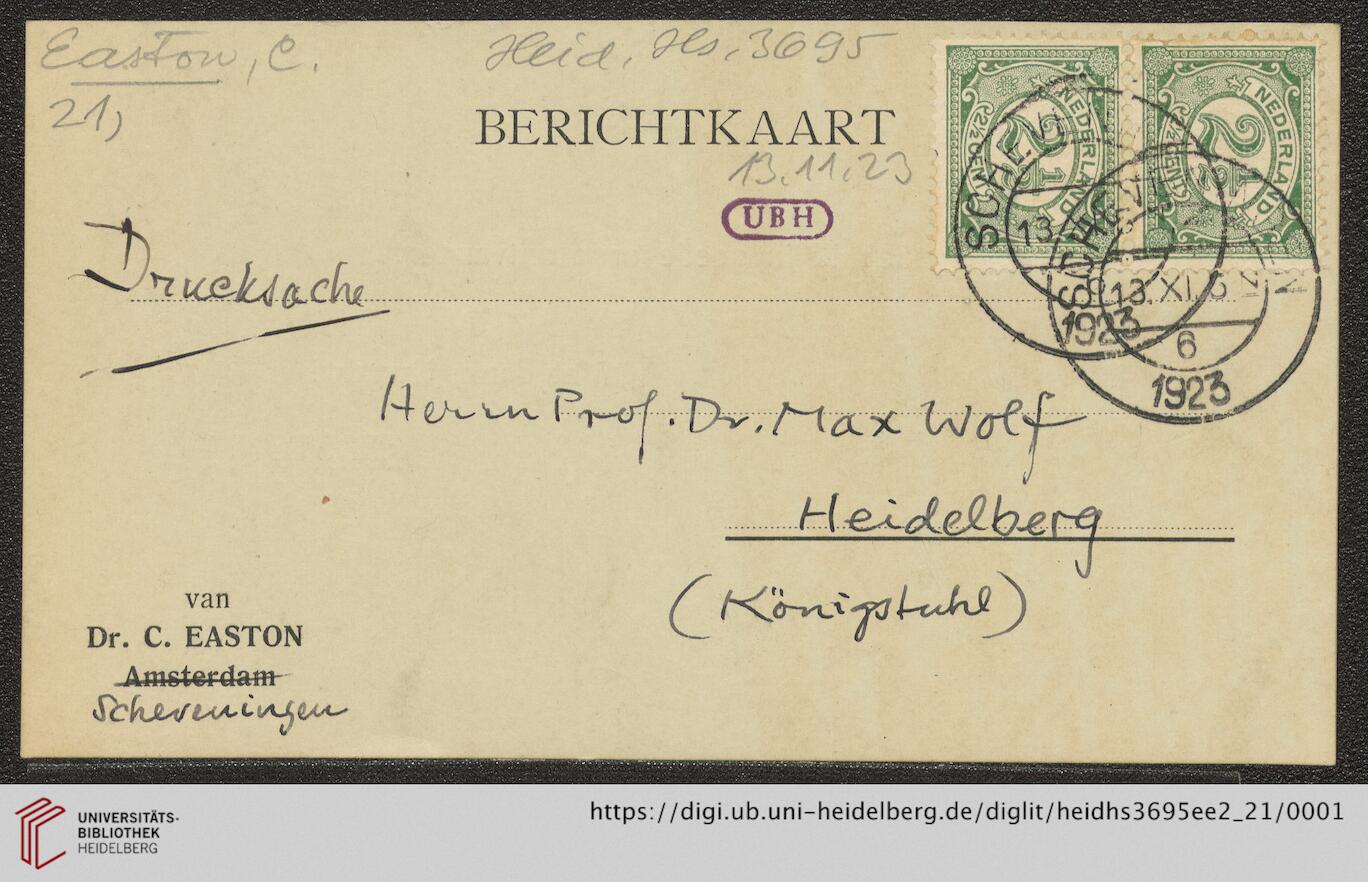 Easton, C.
Heid. Hs. 3695
21)
BERICHTKAART
13.11.23
UBH
NEDERLAND
2½ CENT
NEDERLAND
2½ CENT
SCHEVENIN
13
1923
13. XI. 6
6
1923
Drucksache
Herrn Prof. Dr. Max Wolf
Heidelberg
(Königstuhl)
van
Dr. C. EASTON
Amsterdam
Scheveningen
UNIVERSITÄTS-
BIBLIOTHEK
HEIDELBERG
https://digi.ub.uni-heidelberg.de/diglit/heidhs3695ee2_21/0001